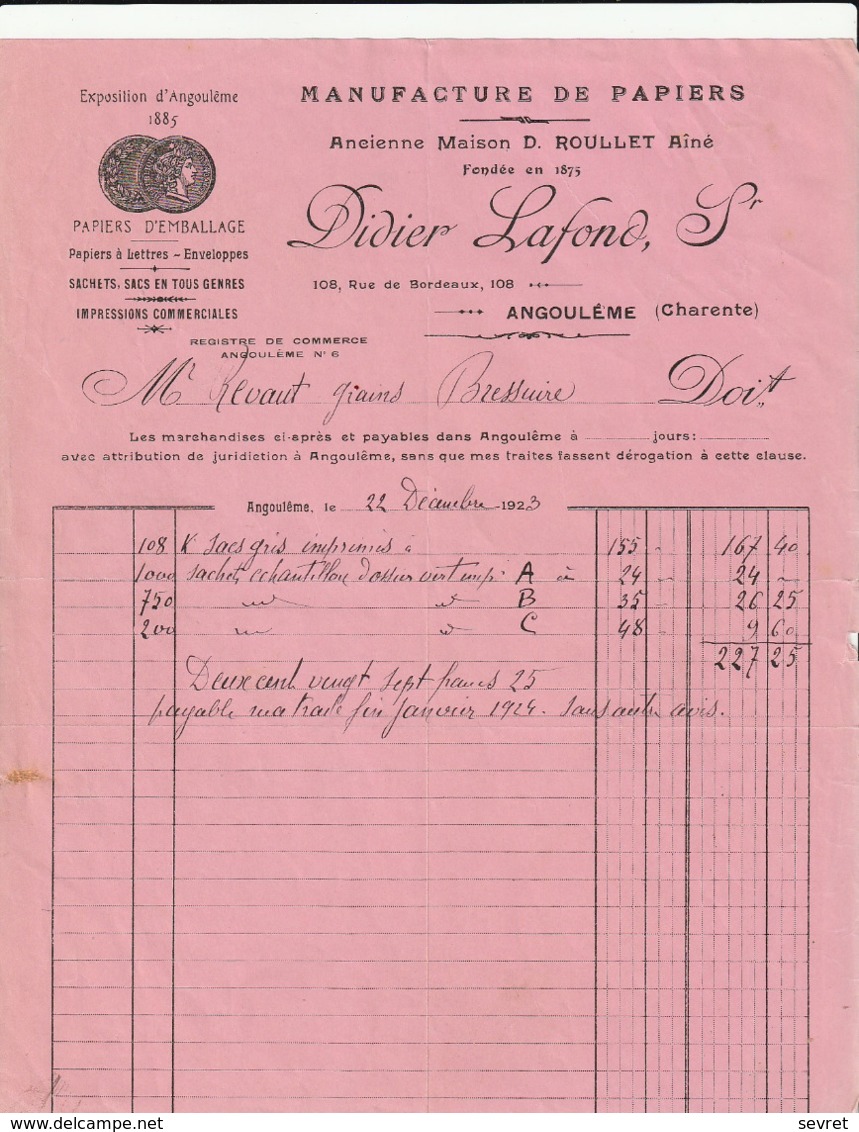 Exposition d'Angoulême
1885
PAPIERS D'EMBALLAGE
Papiers à Lettres - Enveloppes
SACHETS, SACS EN TOUS GENRES
IMPRESSIONS COMMERCIALES
MANUFACTURE DE PAPIERS
Ancienne Maison D. ROULLET Aîné
Fondée en 1875
Didier Lafond, Sr
108, Rue de Bordeaux, 108
ANGOULÊME (Charente)
REGISTRE DE COMMERCE
ANGOULÊME N° 6
Mr Revaut grains Bressuire Doit
Les marchandises ci-après et payables dans Angoulême à jours:
avec attribution de juridiction à Angoulême, sans que mes traites fassent dérogation à cette clause.
Angoulême, le 22 Décembre 1923
108 K Sacs gris imprimés à 155 - 167 40
1000 sachets échantillon dossier vert imp: A à 24 - 24 -
750 B 35 - 26 25
200 C 48 - 9 60
227 25
Deux cent vingt sept francs 25
payable ma traite fin Janvier 1924. Sans autre avis.
delcampe.net
sevret